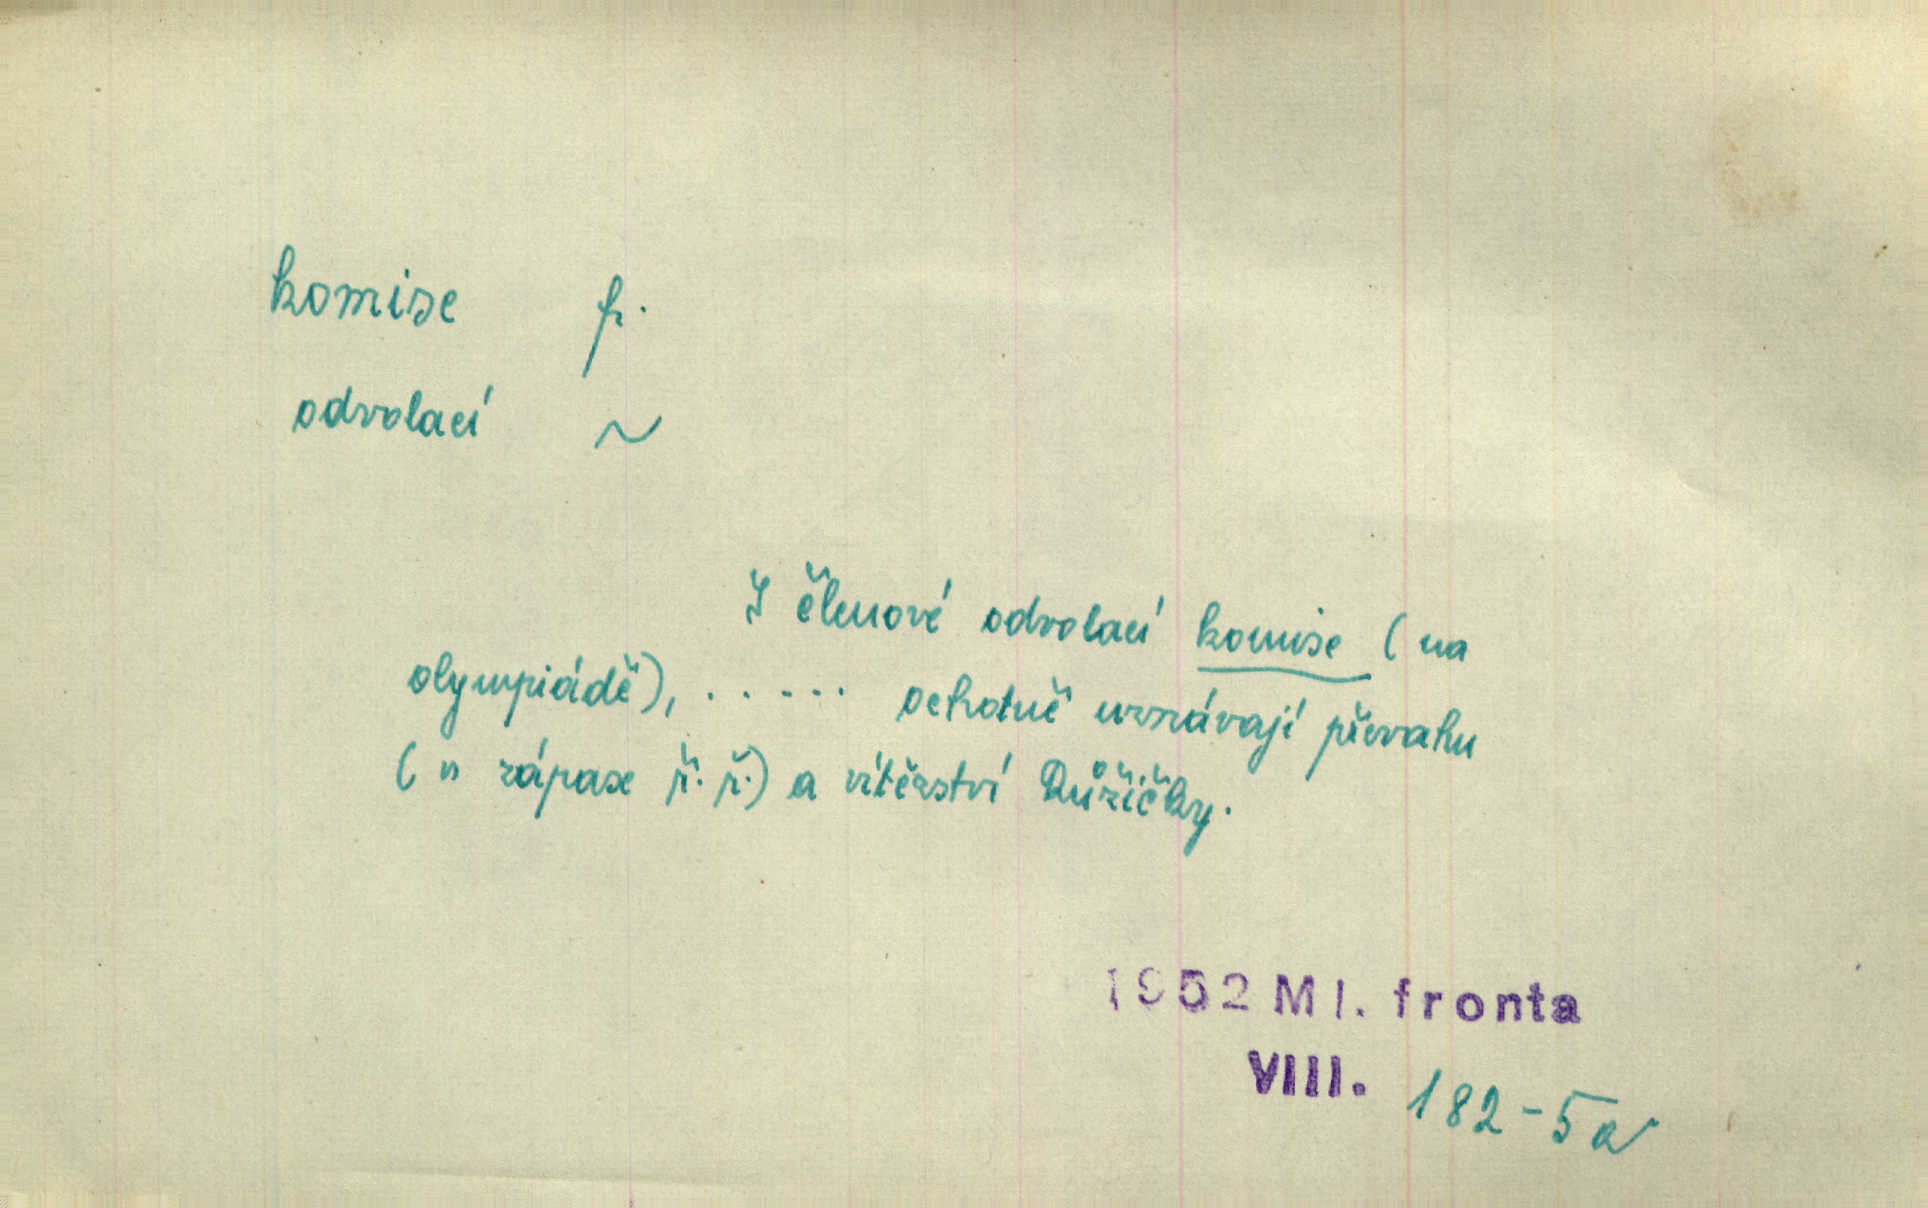 komise f.
odvolací ~
I členové odvolací komise (na
olympiádě), . . . . . . ochotně uznávají převahu
(v zápase ř. ř.) a vítězství Růžičky.
1952 Ml. fronta
VIII. 182-5a